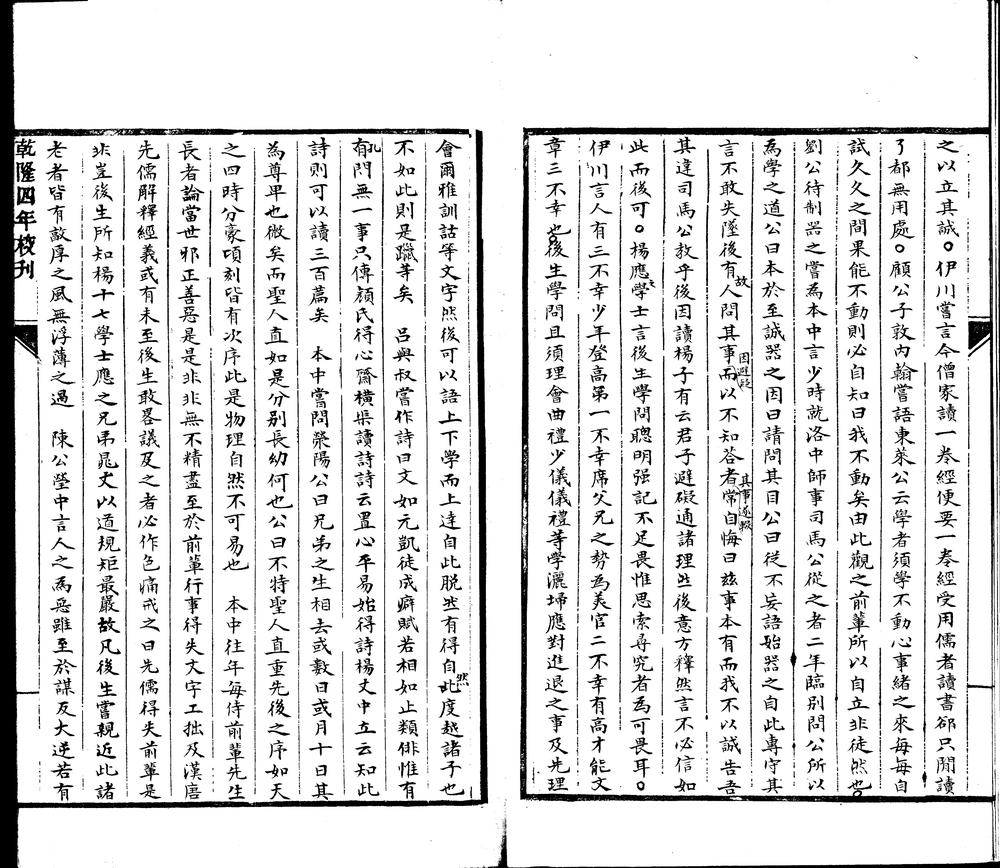 之以立其誠○伊川嘗言今僧家讀一卷經便要一卷經受用儒者讀書郤只閒讀
了都無用處○顧公子敦內翰嘗語東萊公云學者須學不動心事緒之來每每自
試久久之間果能不動則必自知曰我不動矣由此觀之前輩所以自立非徒然也○
劉公待制器之嘗為本中言少時就洛中師事司馬公從之者二年臨別問公所以
為學之道公曰本於至誠器之因曰請問其目公曰從不妄語始器之自此專守其
言不敢失墜後有故人問其事而因避疑以不知荅者其事遂輟常自悔曰玆事本有而我不以誠告吾
其違司馬公教乎後因讀楊子有云君子避礙通諸理然後意方釋然言不必信如
此而後可○楊應之學士言後生學問聰明强記不足畏惟思索尋究者為可畏耳○
伊川言人有三不幸少年登高第一不幸席父兄之勢為美官二不幸有高才能文
章三不幸也○後生學問且須理會曲禮少儀儀禮等學灑埽應對進退之事及先理
會爾雅訓詁等文字然後可以語上下學而上達自此脱然有得自然此度越諸子也
不如此則是躐等矣 呂與叔嘗作詩曰文如元凱徒成癖賦若相如止類俳惟有
孔有問無一事只傳顏氏得心齋橫渠讀詩詩云置心平易始得詩楊丈中立云知此
詩則可以讀三百篇矣 本中嘗問滎陽公曰兄弟之生相去或數日或月十日其
為尊卑也微矣而聖人直如是分別長幼何也公曰不特聖人直重先後之序如天
之四時分豪頃刻皆有次序此是物理自然不可易也 本中往年每侍前輩先生
長者論當世邪正善惡是是非非無不精盡至於前輩行事得失文字工拙及漢唐
先儒解釋經義或有未至後生敢畧議及之者必作色痛戒之曰先儒得失前輩是
非豈後生所知楊十七學士應之兄弟晁丈以道規矩最嚴故凡後生嘗親近此諸
老者皆有敦厚之風無浮薄之過 陳公瑩中言人之為惡雖至於謀反大逆若有
乾隆四年校刊